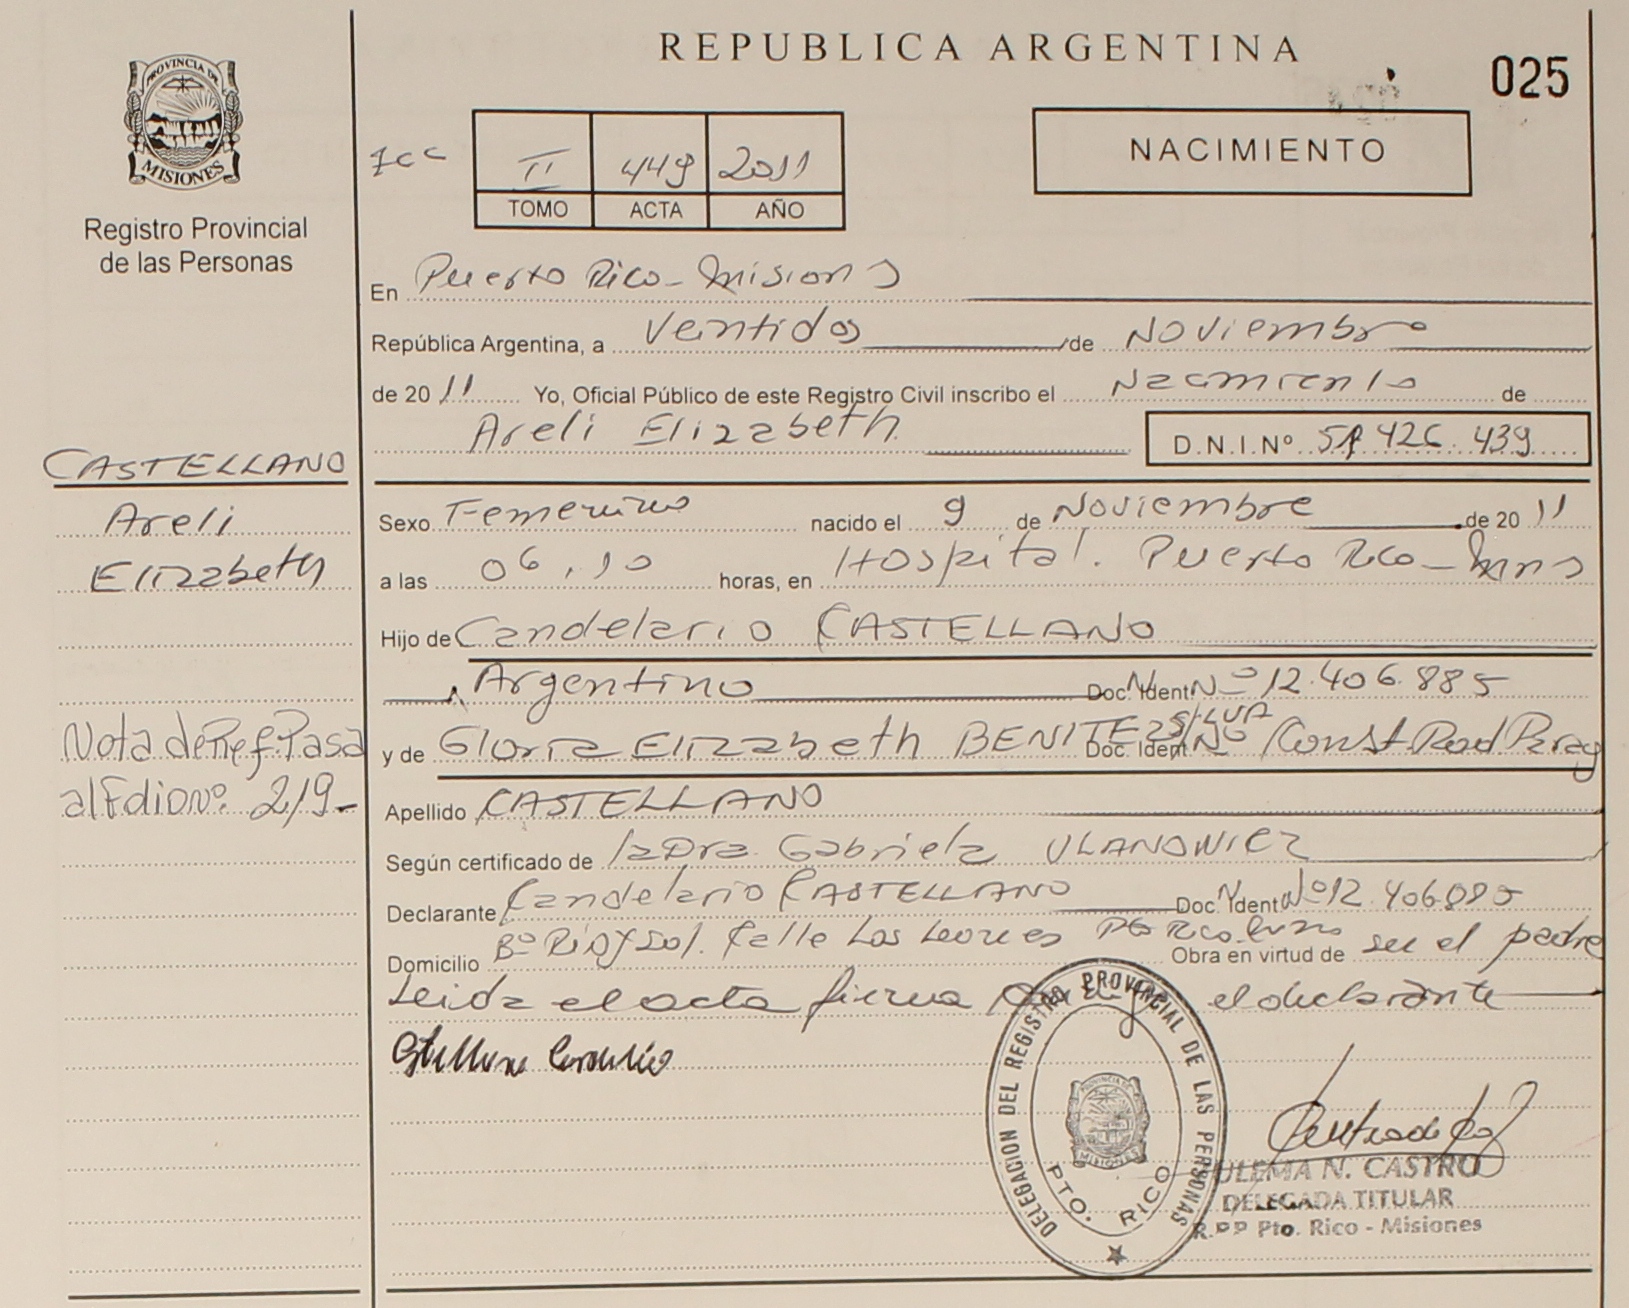 REPUBLICA ARGENTINA
025
PROVINCIA DE
MISIONES
Registro Provincial
de las Personas
II 449 2011
TOMO ACTA AÑO
NACIMIENTO
En Puerto Rico - Misions
República Argentina, a Ventidos de Noviembre
de 20 11 Yo, Oficial Público de este Registro Civil inscribo el Nacimiento de
Areli Elizabeth
D.N.I.Nº 426.439
CASTELLANO
Areli
Elizabeth
Sexo Femenino nacido el 9 de Noviembre de 20 11
a las 06,10 horas, en Hospital. Puerto Rico - Mns
Hijo de Candelario CASTELLANO
Argentino Doc. Ident. Nº 12.406.885
y de Gloria Elizabeth BENITEZ SILVA Doc. Ident. Nº Const. Rad Parag
Nota de Ref. Pasa
al Fdio Nº. 219-
Apellido CASTELLANO
Según certificado de la Dra. Gabriela ULANOWIEZ
Declarante Candelario CASTELLANO Doc. Ident. Nº 12.406.885
Domicilio Bº Rio y Sol. Calle Los Leones Pto Rico Obra en virtud de ser el padre
Leida el acta firma el declarante
DELEGACION DEL REGISTRO PROVINCIAL DE LAS PERSONAS
PROVINCIA DE
MISIONES
PTO. RICO
ULEMA N. CASTRO
DELEGADA TITULAR
R.P.P Pto. Rico - Misiones